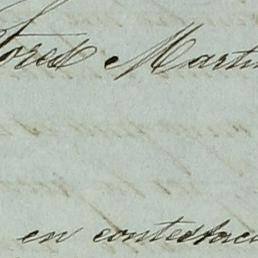 tores Marti
en contestac